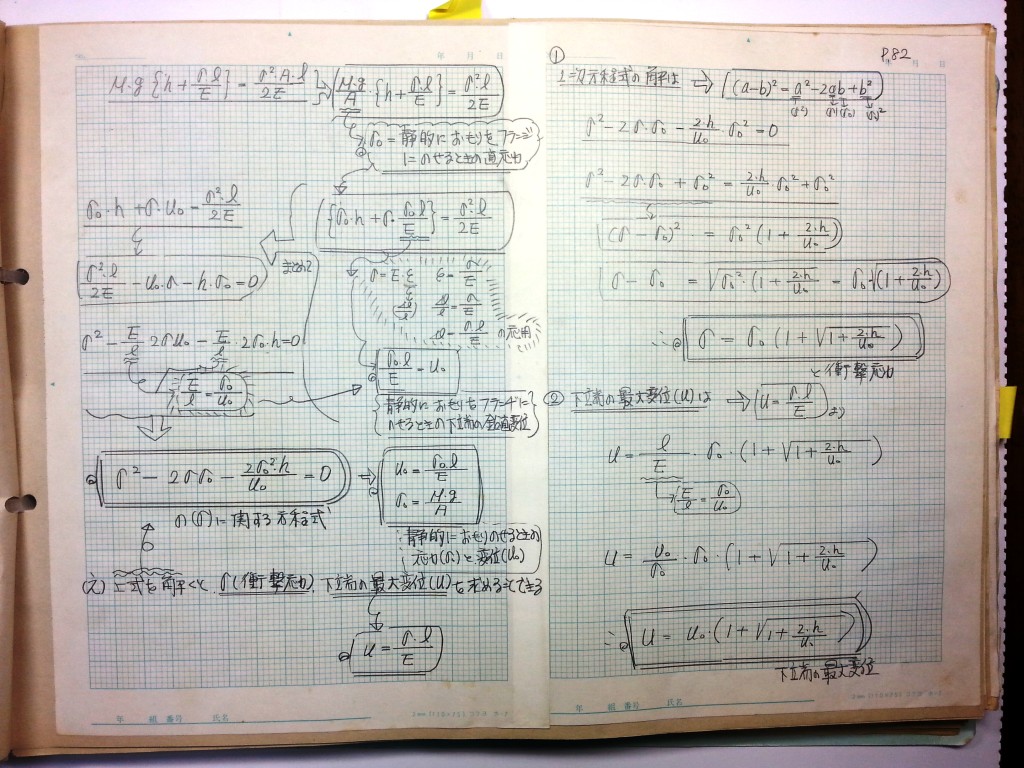 M・g{h + σ・l/E} = σ²・A・l/2E
M・g/A・{h + σ・l/E} = σ²・l/2E
σ₀ = 静的におもりをフランジ
にのせるときの直応力
{σ₀・h + σ・σ₀l/E} = σ²・l/2E
σ₀・h + σ・u₀ = σ²・l/2E
まとめて
σ²・l/2E - u₀・σ - h・σ₀ = 0
σ = E・ε
ε = σ/E
Δl/l = σ/E
Δl = σ・l/E の応用
σ² - E/l 2σu₀ - E/l・2σ₀・h = 0
E/l = σ₀/u₀
σ₀l/E = u₀
静的におもりをフランジに
のせるときの下立端の鉛直変位
σ² - 2σσ₀ - 2σ₀²・h/u₀ = 0
u₀ = σ₀・l/E
σ₀ = M・g/A
の(σ)に関する方程式
静的におもりのせるときの
応力(σ₀)と変位(u₀)
(え) 上式を解くと、σ(衝撃応力)、下立端の最大変位(u)を求めることできる
u = σ・l/E
年 組 番号 氏名
年 月 日
P.82
①
2次方程式の解は
(a-b)² = a² - 2ab + b²
σ² - 2σ・σ₀ - 2・h/u₀・σ₀² = 0
σ² - 2σ・σ₀ + σ₀² = 2・h/u₀・σ₀² + σ₀²
(σ - σ₀)² = σ₀²(1 + 2・h/u₀)
σ - σ₀ = √σ₀²・(1 + 2・h/u₀) = σ₀・√(1 + 2・h/u₀)
∴ σ = σ₀(1 + √1 + 2・h/u₀)
と衝撃応力
② 下立端の最大変位(u)は
u = σ・l/E より
u = l/E・σ₀・(1 + √1 + 2・h/u₀)
E/l = σ₀/u₀
u = u₀/σ₀・σ₀・(1 + √1 + 2・h/u₀)
∴ u = u₀・(1 + √1 + 2・h/u₀)
下立端の最大変位
年 組 番号 氏名